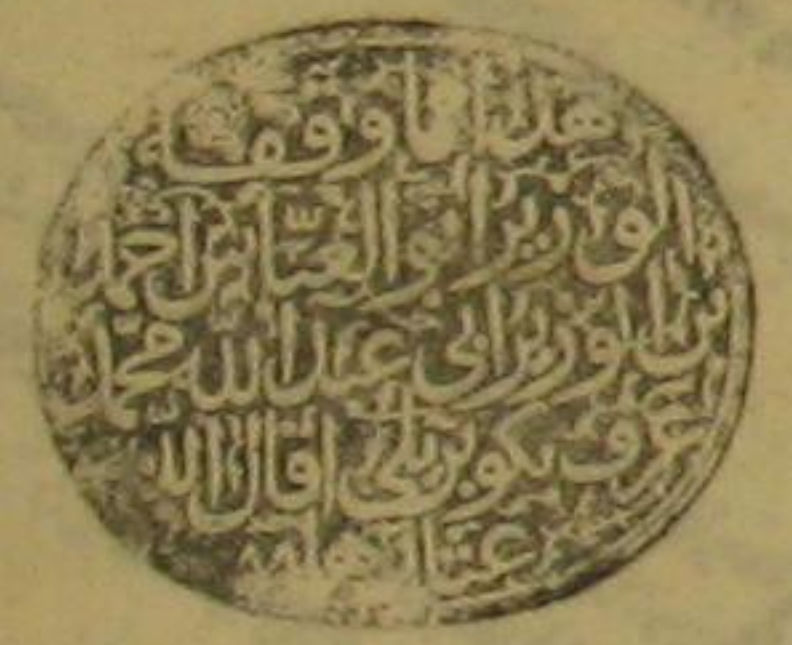 هذا ما وقفه
الوزير ابو العباس احمد
بن الوزير ابي عبد الله محمد
عرف بكوپريلي اقال الله
عثارهما ٨٨